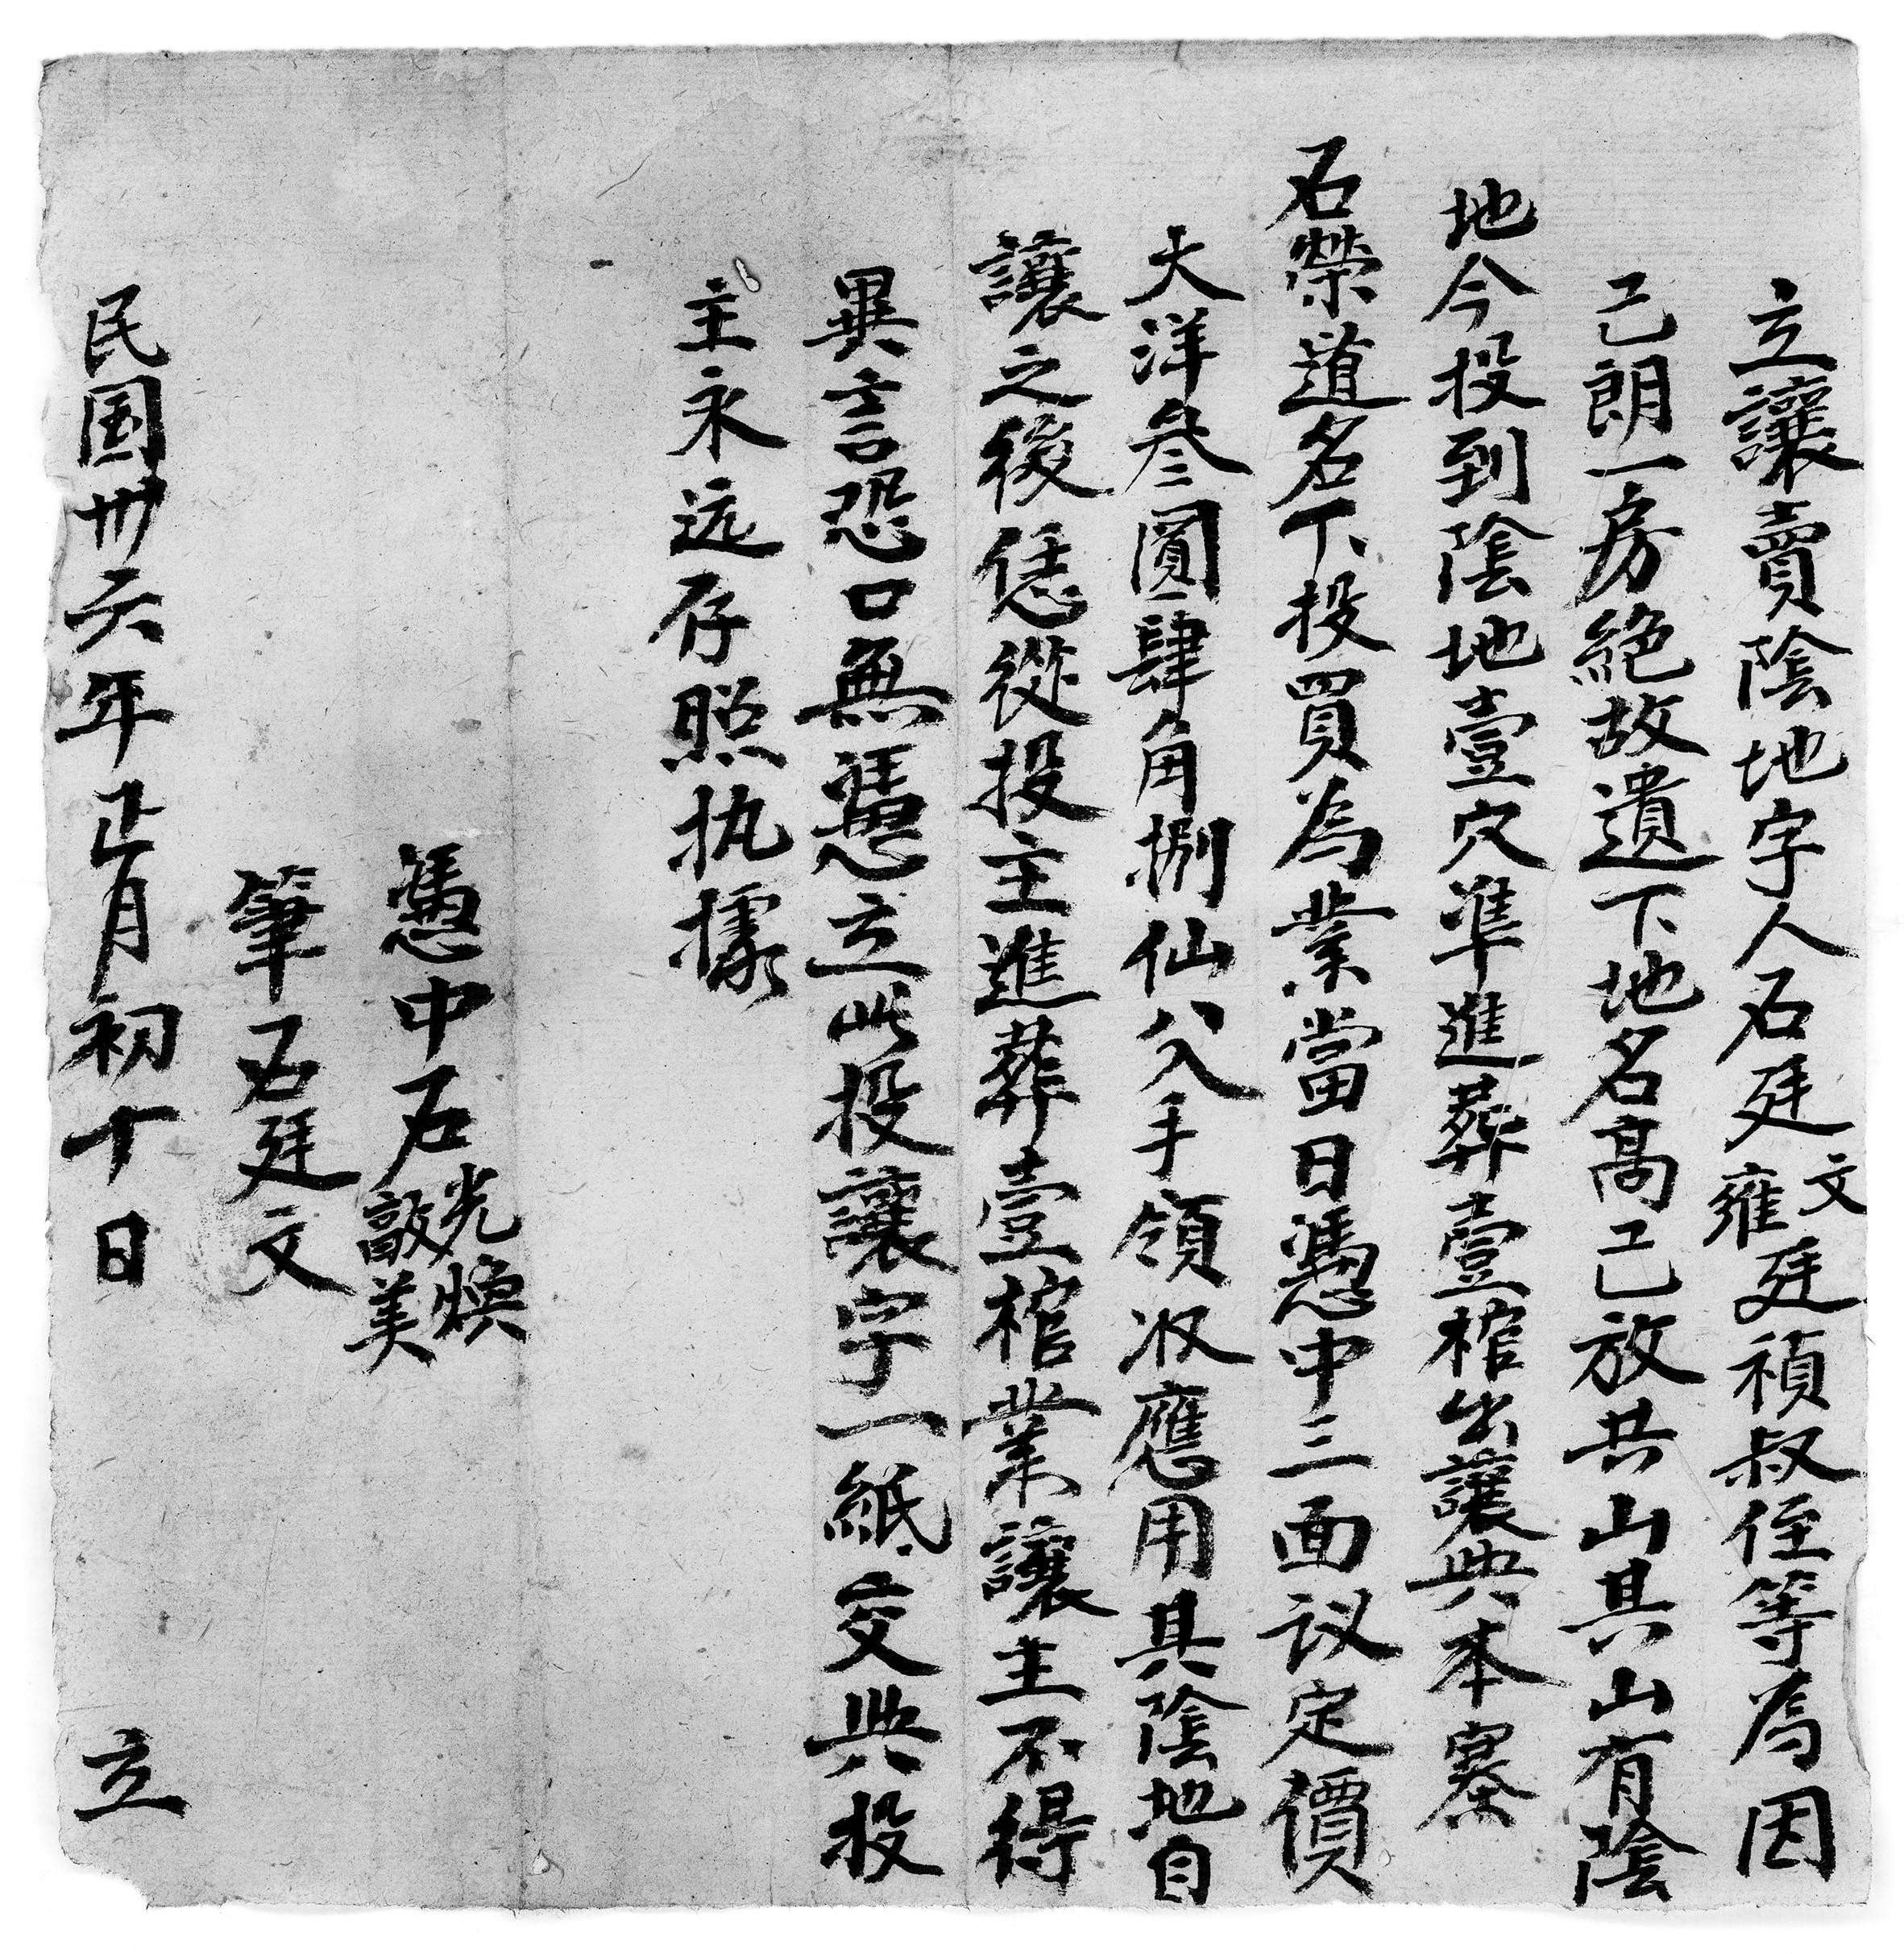 立讓賣陰地字人石廷文雍廷禎叔侄等爲因
己朗一房絶故遺下地名高己放共山其山有陰
地今投到陰地壹穴準進葬壹棺出讓與本寨
石榮道名下投買為業當日憑中三面议定價
大洋叄圓肆角捌仙入手領收應用其陰地自
讓之後恁從投主進葬壹棺業讓主不得
異言恐口無憑立此投讓字一紙交與投
主永远存照执據
憑中石光煥敨美
筆石廷文
民国卅六年正月初十日 立